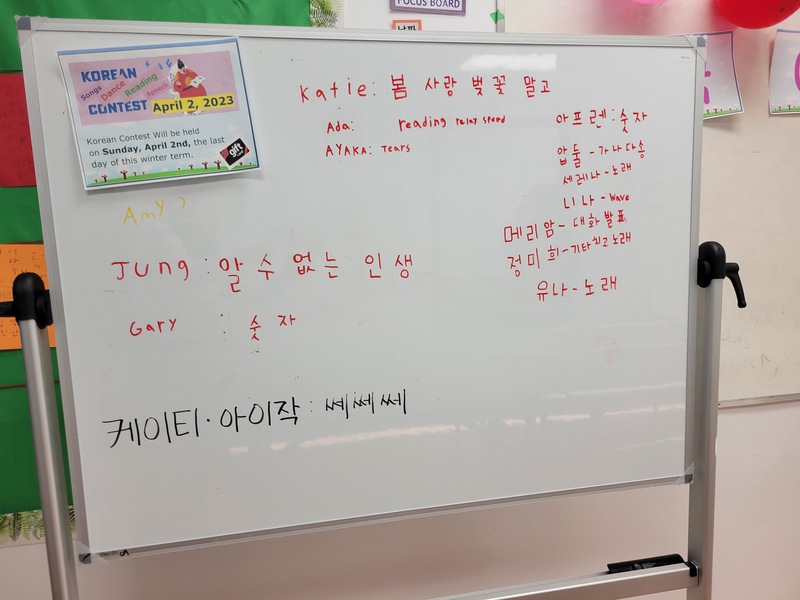 FOCUS BOARD
KOREAN
Songs Dance Reading Speech
CONTEST April 2, 2023
Korean Contest Will be held
on Sunday, April 2nd, the last
day of this winter term.
gift
Katie: 봄 사랑 벚꽃 말고
Ada: reading relay speed
AYAKA: Tears
아프렌: 숫자
압둘-가나다송
세레나-노래
니나-wave
메리암-대화발표
정미희-기타치고노래
유나-노래
Amy ?
Jung: 알 수 없는 인생
Gary : 숫자
케이티·아이작: 쎄쎄쎄